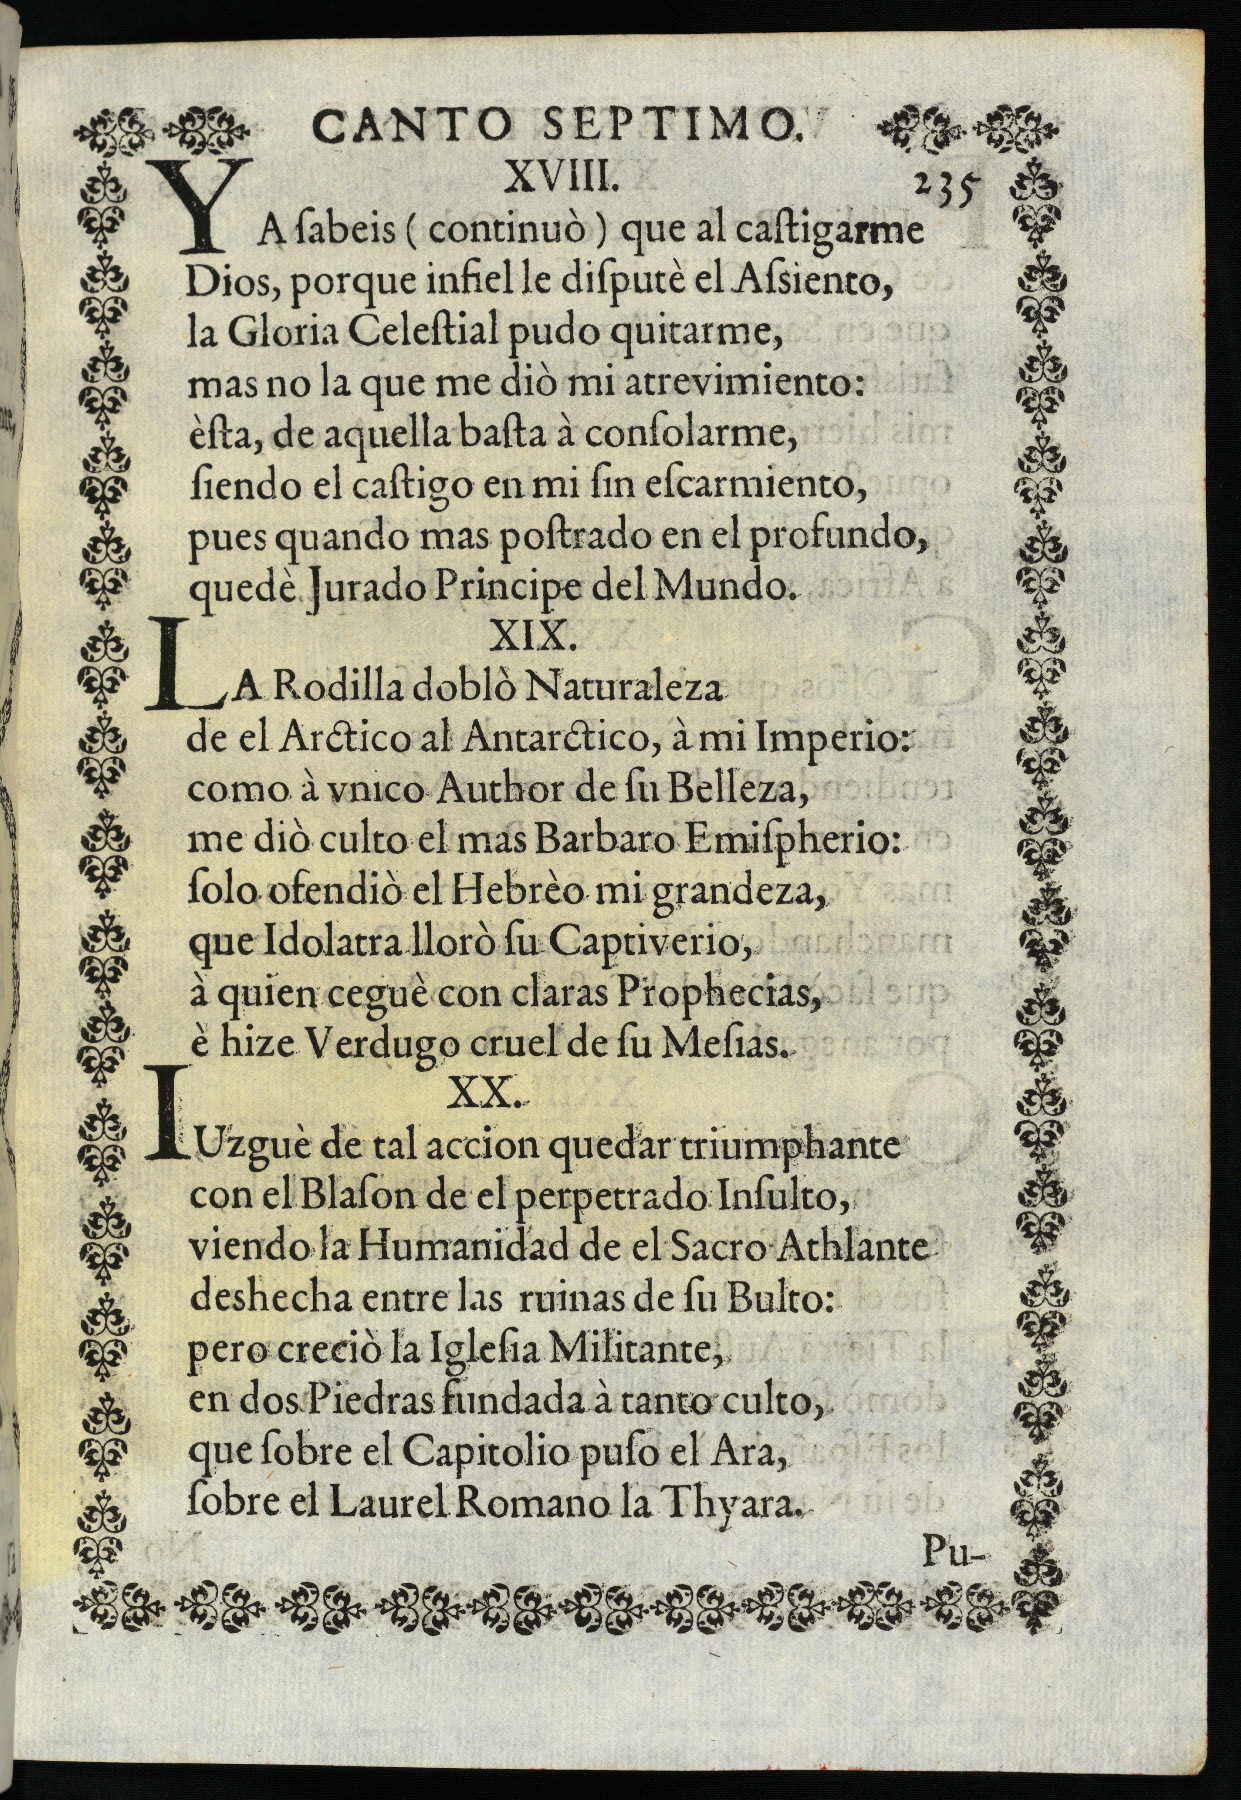 CANTO SEPTIMO.
XVIII.
235
YA ſabeis ( continuò ) que al caſtigarme
Dios, porque infiel le diſputè el Aſsiento,
la Gloria Celeſtial pudo quitarme,
mas no la que me diò mi atrevimiento:
èſta, de aquella baſta à conſolarme,
ſiendo el caſtigo en mi ſin eſcarmiento,
pues quando mas poſtrado en el profundo,
quedè Jurado Principe del Mundo.
XIX.
LA Rodilla doblò Naturaleza
de el Arctico al Antarctico, à mi Imperio:
como à vnico Author de ſu Belleza,
me diò culto el mas Barbaro Emiſpherio:
ſolo ofendiò el Hebrèo mi grandeza,
que Idolatra llorò ſu Captiverio,
à quien ceguè con claras Prophecias,
è hize Verdugo cruel de ſu Meſias.
XX.
IUzguè de tal accion quedar triumphante
con el Blaſon de el perpetrado Inſulto,
viendo la Humanidad de el Sacro Athlante
deshecha entre las ruinas de ſu Bulto:
pero creciò la Igleſia Militante,
en dos Piedras fundada à tanto culto,
que ſobre el Capitolio puſo el Ara,
ſobre el Laurel Romano la Thyara.
Pu-